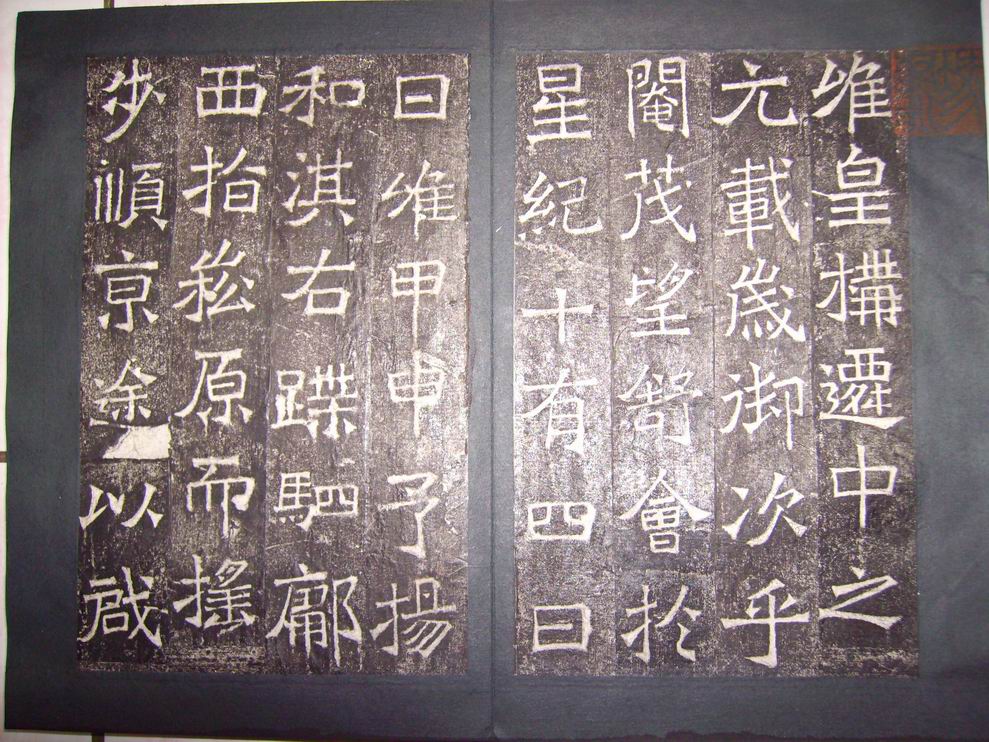 維皇構遷中之
元載歲御次乎
閹茂望舒會扵
星紀十有四日
日維甲申予揚
和淇右蹀駟鄘
西指崧原而搖
步順京途以